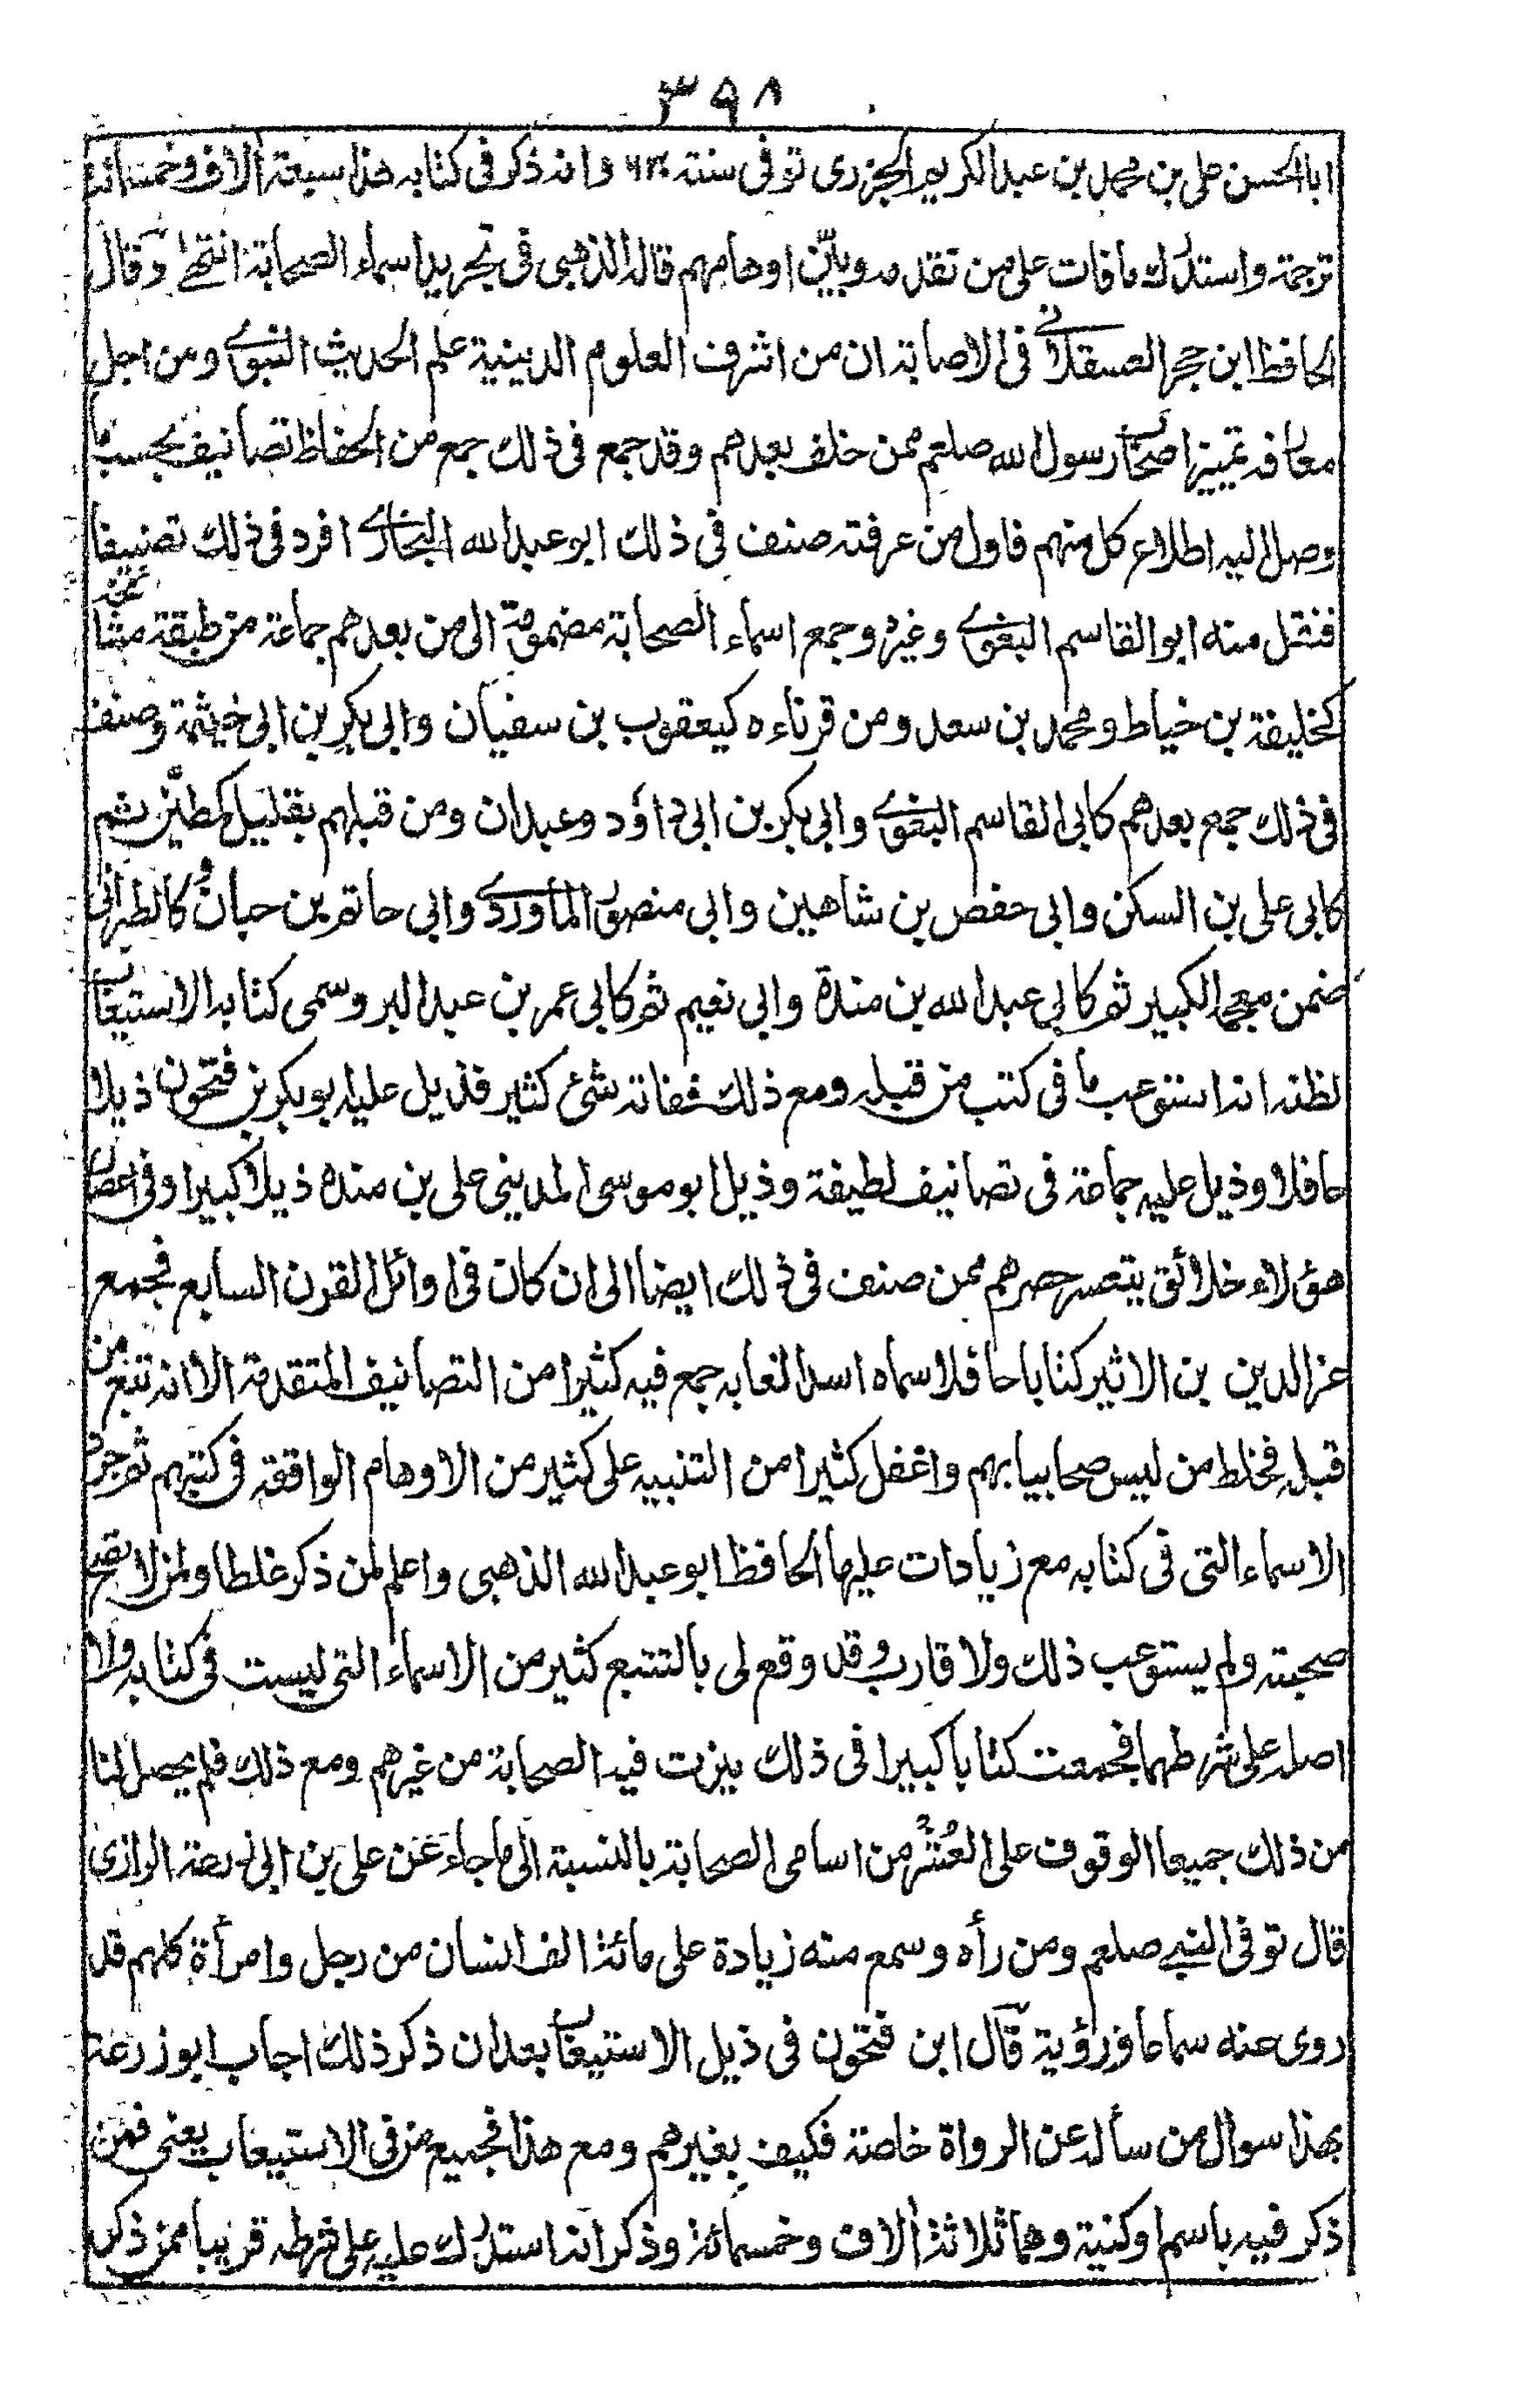 ٣٩٨
ابا الحسن على بن محمد بن عبد الكريم الجزرى توفى سنة ٦٣٠ وانه ذكر فى كتابه هذا سبعة آلاف وخمسمائة
ترجمة واستدرك ما فات على من تقدمه وبيّن اوهامهم قاله الذهبى فى تجريد اسماء الصحابة انتهى وقال
الحافظ ابن حجر العسقلانى فى الاصابة ان من اشرف العلوم الدينية علم الحديث النبوى ومن اجل
معارفه تمييز اصحاب رسول الله صلعم ممن خلف بعدهم وقد جمع فى ذلك جمع من الحفاظ تصانيف بحسب ما
وصل اليه اطلاع كل منهم فاول من عرفته صنف فى ذلك ابو عبد الله البخارى افرد فى ذلك تصنيفا
فنقل منه ابو القاسم البغوى وغيره وجمع اسماء الصحابة مضمومة الى من بعدهم جماعة من طبقة مشائخه
كخليفة بن خياط ومحمد بن سعد ومن قرناءه كيعقوب بن سفيان وابى بكر بن ابى خيثمة وصنف
فى ذلك جمع بعدهم كابى القاسم البغوى وابى بكر بن ابى داؤد وعبدان ومن قبلهم بقليل كمطيّن ثم
كابى على بن السكن وابى حفص بن شاهين وابى منصور الماوردى وابى حاتم بن حبان وكالطبرانى
ضمن معجمه الكبير ثم كابى عبد الله بن مندة وابى نعيم ثم كابى عمر بن عبد البر وسمى كتابه الاستيعاب
لظنه انه استوعب ما فى كتب من قبله ومع ذلك ففاته شئ كثير فذيل عليه ابو بكر بن فتحون ذيلا
حافلا وذيل عليه جماعة فى تصانيف لطيفة وذيل ابو موسى المدينى على بن منده ذيلا كبيرا وفى اعصار
هؤلاء خلائق يتعسر حصرهم ممن صنف فى ذلك ايضا الى ان كان فى اوائل القرن السابع فجمع
عز الدين بن الاثير كتابا حافلا سماه اسد الغابه جمع فيه كثيرا من التصانيف المتقدمة الا انه تبع من
قبله فخلط من ليس صحابيا بهم واغفل كثيرا من التنبيه على كثير من الاوهام الواقعه فى كتبهم ثم جرد
الاسماء التى فى كتابه مع زيادات عليها الحافظ ابو عبد الله الذهبى واعلم لمن ذكر غلطا ولمن لا تصح
صحبته ولم يستوعب ذلك ولا قارب وقد وقع لى بالتتبع كثير من الاسماء التى ليست فى كتابه ولا
اصله على شرطهما فجمعت كتابا كبيرا فى ذلك ميزت فيه الصحابة من غيرهم ومع ذلك فلم يحصل لنا
من ذلك جميعا الوقوف على العُشْر من اسامى الصحابة بالنسبة الى ما جاء عَن على بن ابى الرازى
قال توفى النبى صلعم ومن رأه وسمع منه زيادة على مائة الف انسان من رجل وامرأة كلهم قد
روى عنه سماعا ورؤية قال ابن فتحون فى ذيل الاستيعاب بعد ان ذكر ذلك اجاب ابو زرعة
بهذا سوال من سأله عن الرواة خاصة فكيف بغيرهم ومع هذا فجميع من فى الاستيعاب يعنى فمن
ذكر فيه باسم او كنية وهما ثلاثة آلاف وخمسمائة وذكر انه استدرك عليه على شرطه قريبا ممن ذكر